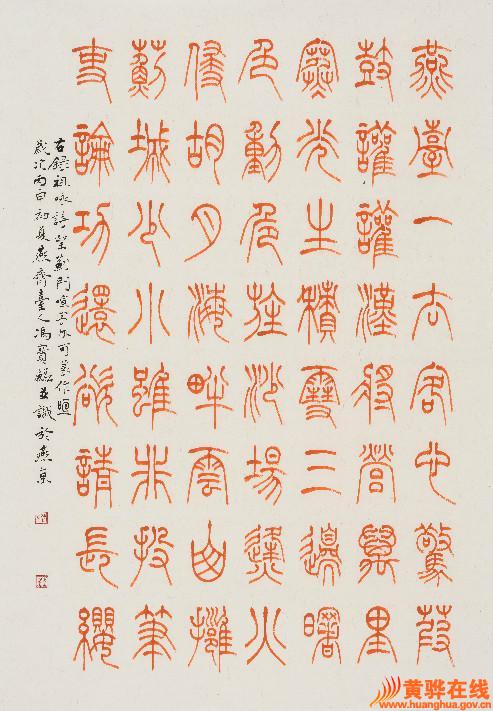 燕臺一去客心驚葭
鼓讙讙漢將營萬里
寒光生積雪三邊曙
色動危旌沙場烽火
侵胡月海畔雲山擁
薊城少小雖非投筆
吏論功還欲請長纓
右錄祖咏詩望薊門
歲次丙申初夏燕齊臺人馮寶麟並識於燕京
黄骅在线
www.huanghua.gov.cn